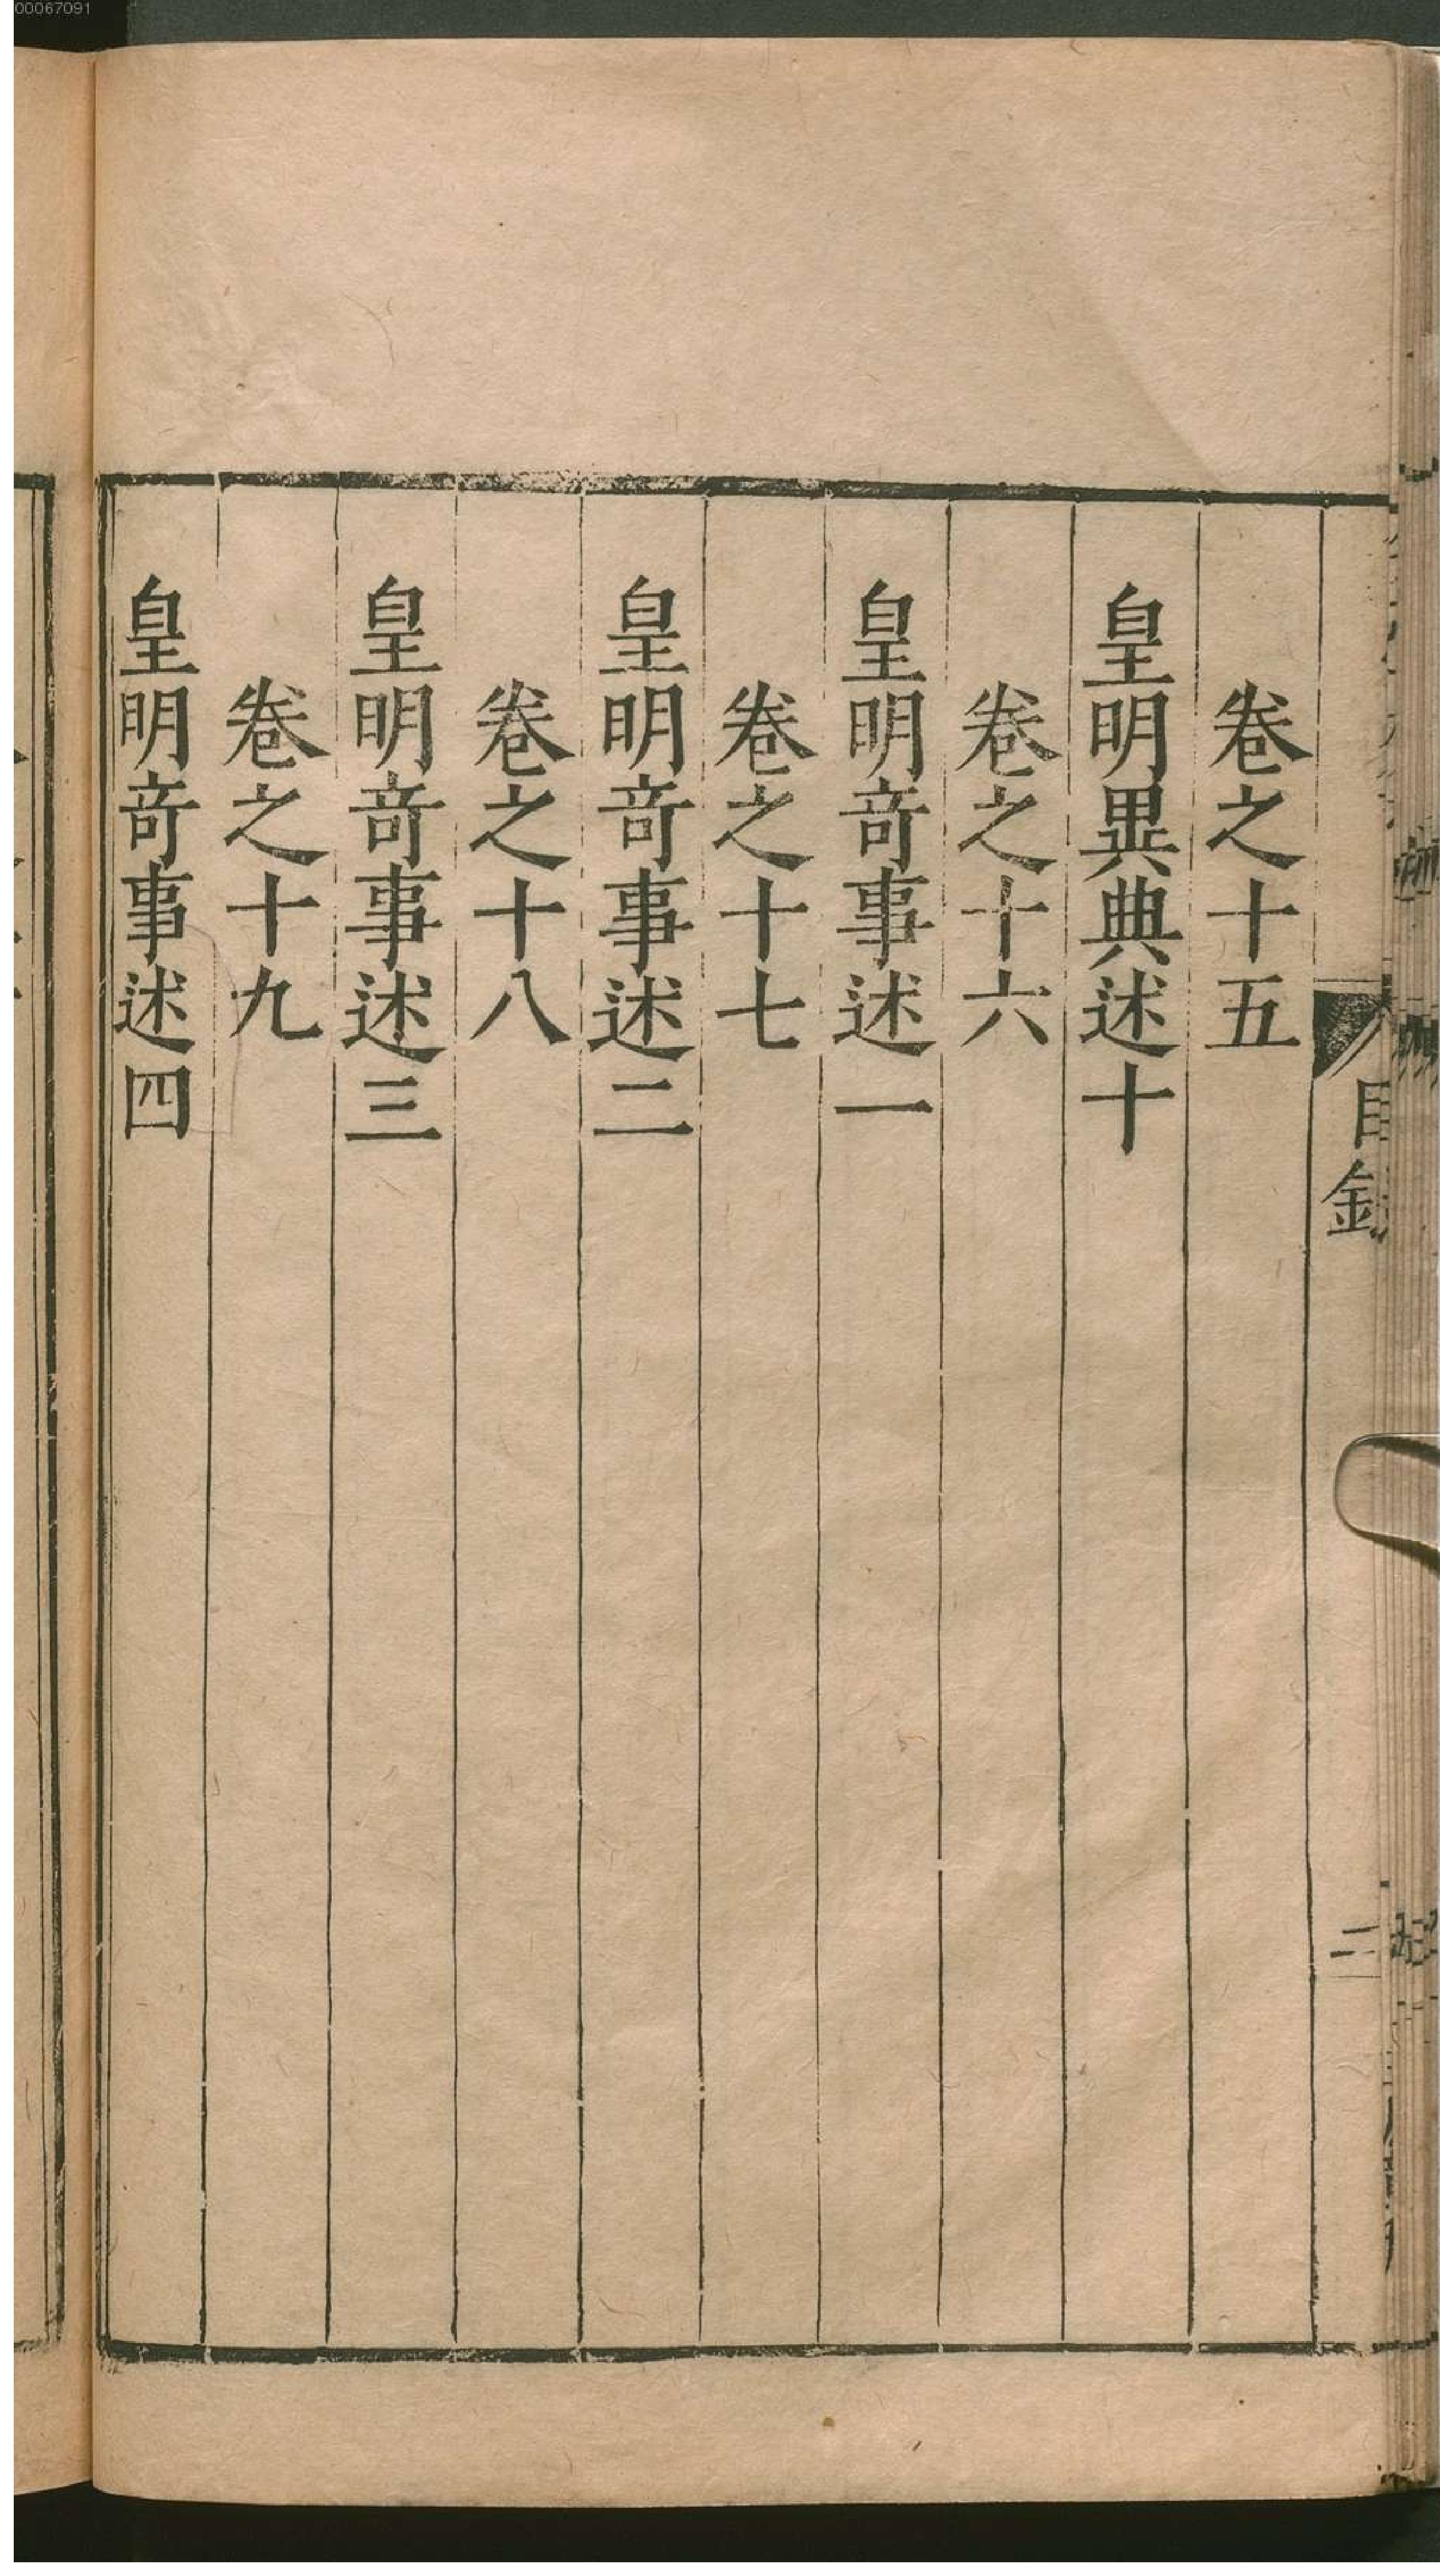 00067091
目錄
二
卷之十五
皇明異典述十
卷之十六
皇明奇事述一
卷之十七
皇明奇事述二
卷之十八
皇明奇事述三
卷之十九
皇明奇事述四